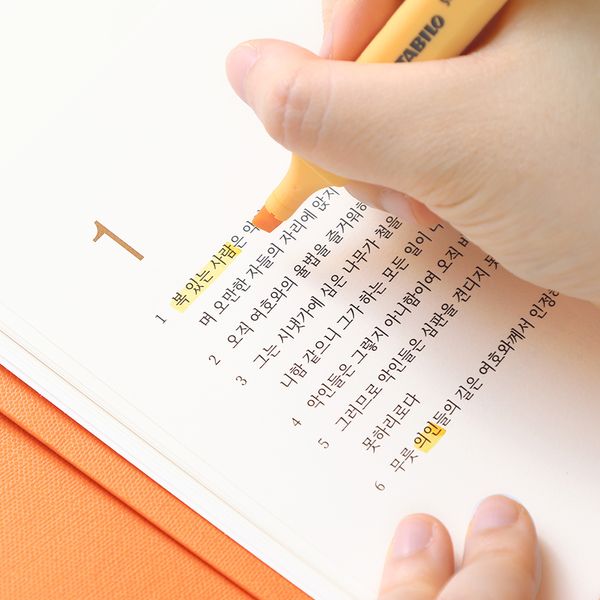 STABILO
1
1 복 있는 사람은 악
며 오만한 자들의 자리에 앉지
2 오직 여호와의 율법을 즐거워하
3 그는 시냇가에 심은 나무가 철을
나함 같으니 그가 하는 모든 일이
4 악인들은 그렇지 아니함이여 오직 바
5 그러므로 악인들은 심판을 견디지 못
못하리로다
6 무릇 의인들의 길은 여호와께서 인정